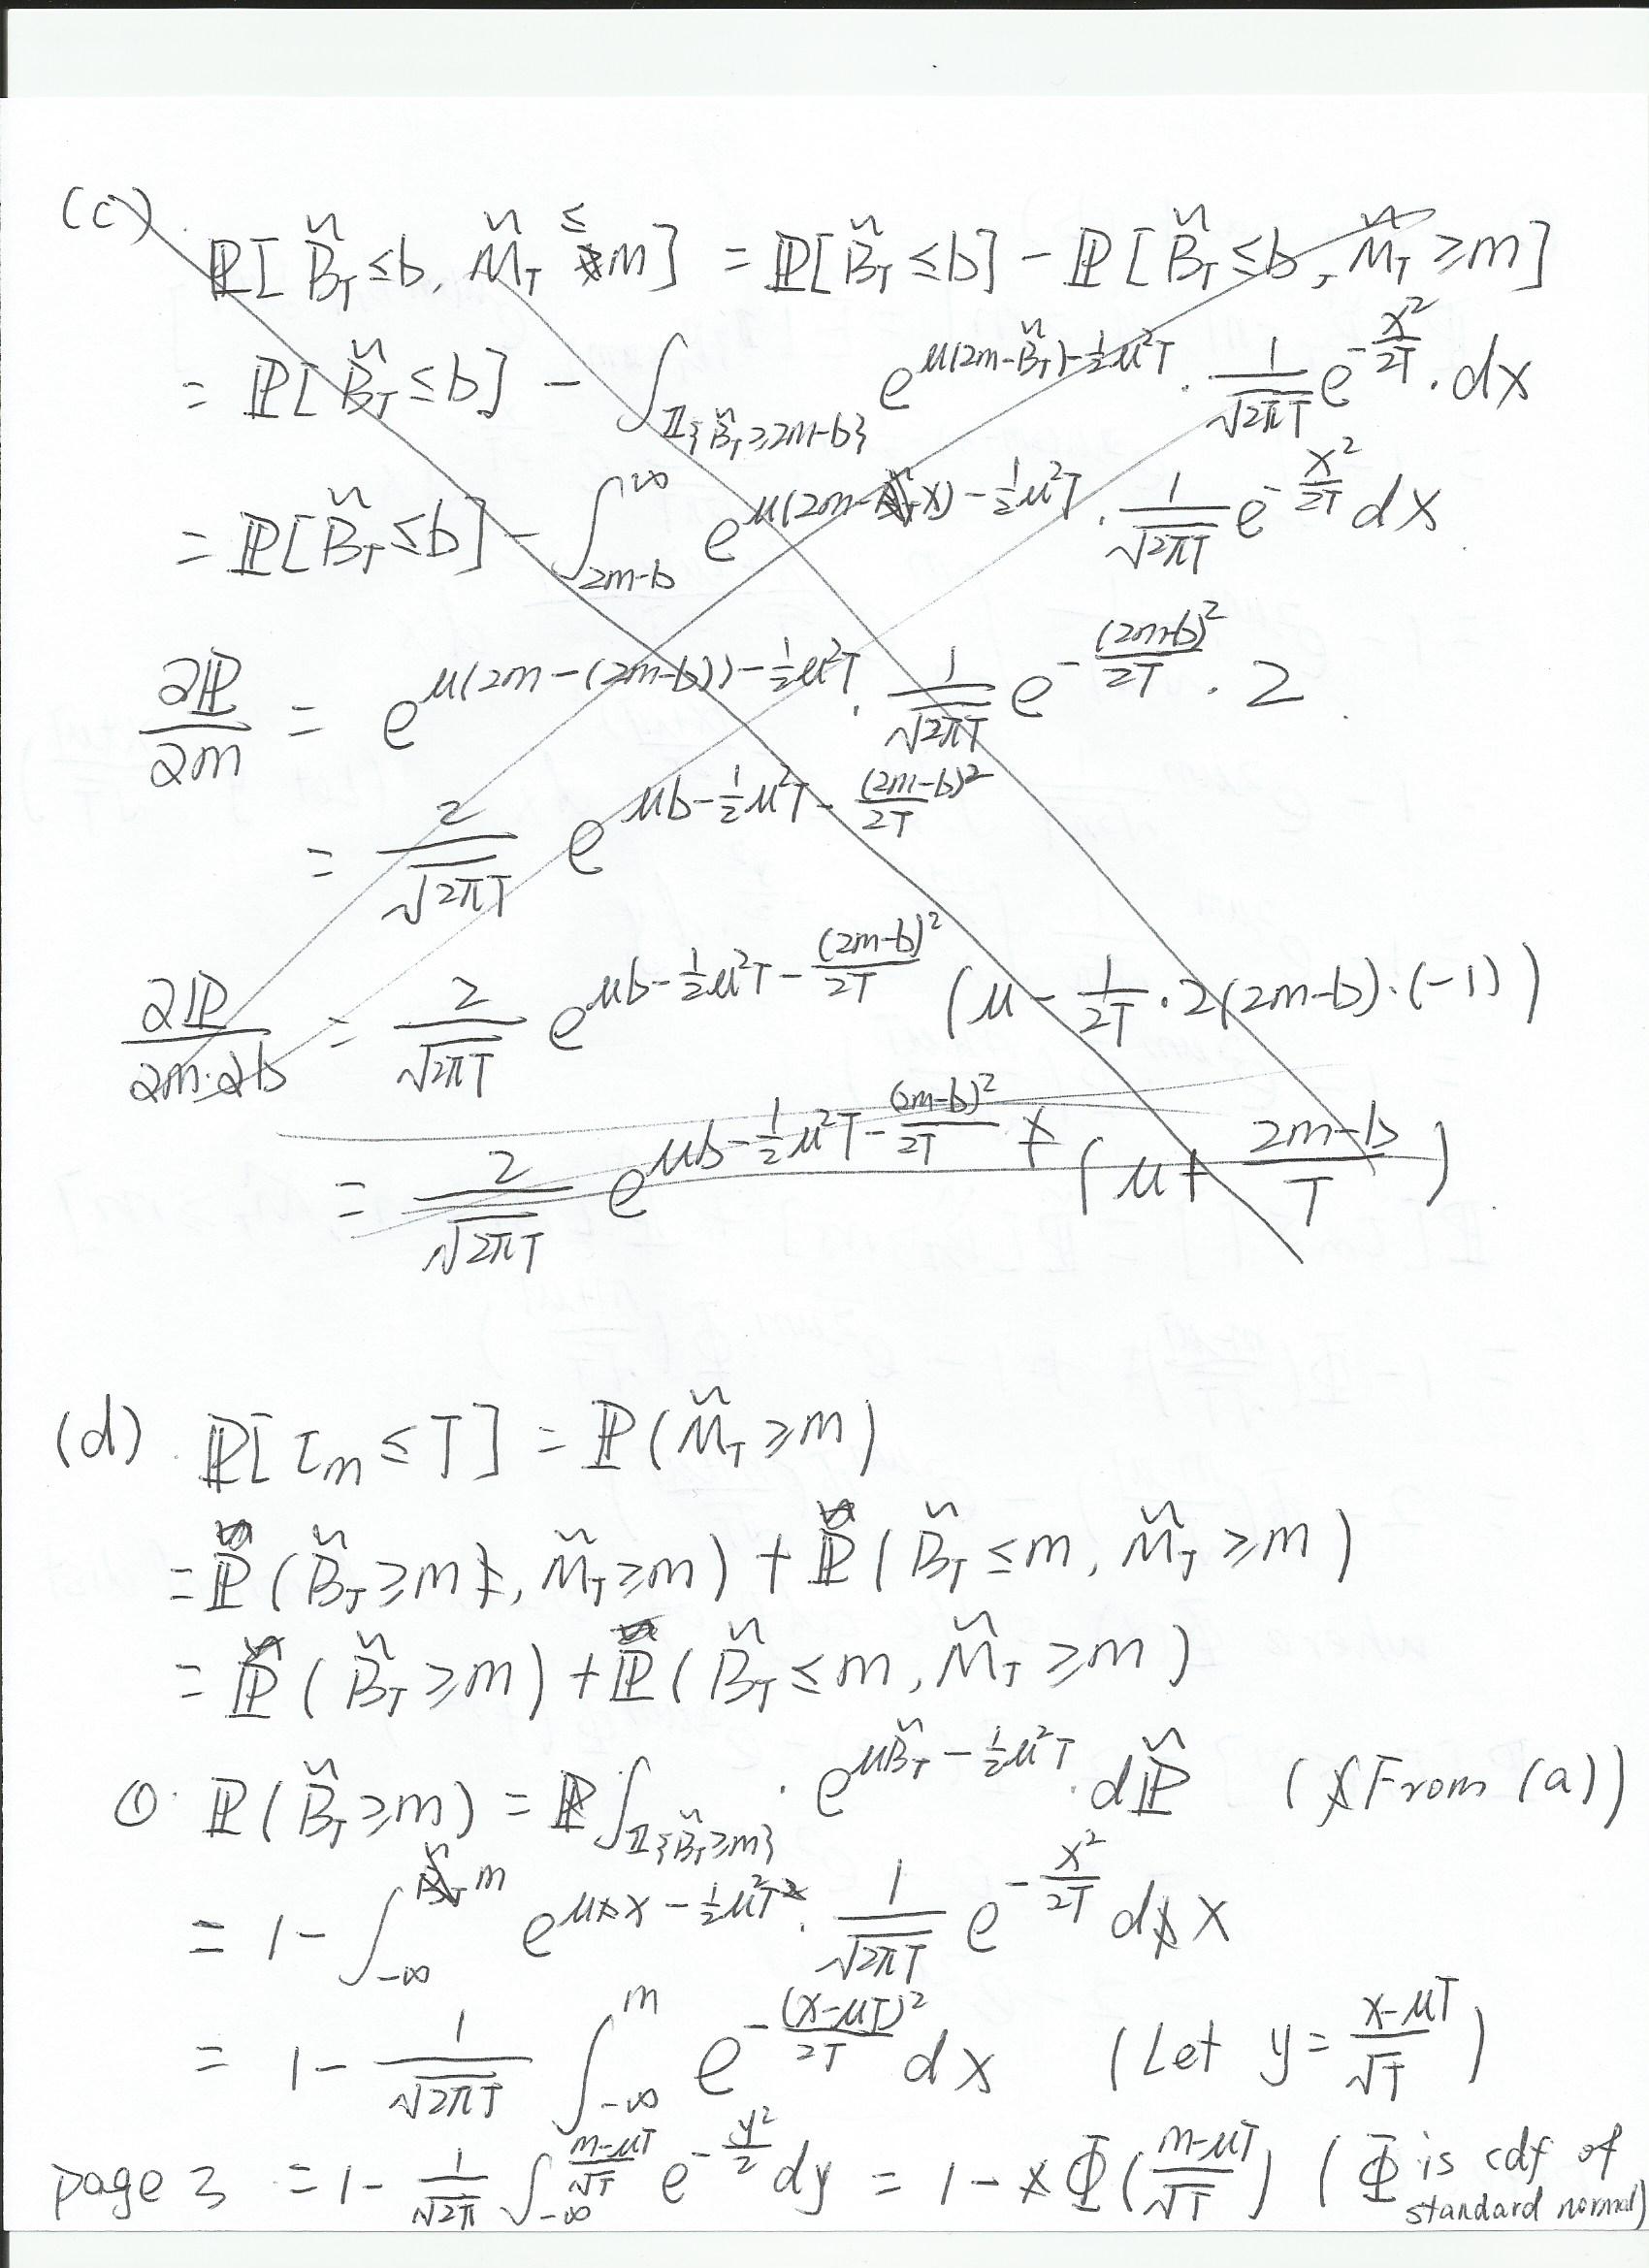 (c)
ℙ[B̃_T ≤ b, M̃_T ≤ m] = ℙ[B̃_T ≤ b] − ℙ[B̃_T ≤ b, M̃_T ≥ m]
= ℙ[B̃_T ≤ b] − ∫_{𝟙{B̃_T ≥ 2m−b}} e^{μ(2m−B̃_T)−½μ²T} · 1/√(2πT) e^{−x²/2T} · dx
= ℙ[B̃_T ≤ b] − ∫_{2m−b}^{∞} e^{μ(2m−x)−½μ²T} · 1/√(2πT) e^{−x²/2T} dx.
∂ℙ/∂m = e^{μ(2m−(2m−b))−½μ²T} · 1/√(2πT) e^{−(2m−b)²/2T} · 2.
= 2/√(2πT) e^{μb−½μ²T−(2m−b)²/2T}
∂ℙ/∂m·∂b = 2/√(2πT) e^{μb−½μ²T−(2m−b)²/2T} (μ − 1/2T · 2(2m−b)·(−1))
= 2/√(2πT) e^{μb−½μ²T−(2m−b)²/2T} (μ + (2m−b)/T).
(d). ℙ[τ_m ≤ T] = ℙ(M̃_T ≥ m)
= ℙ(B̃_T ≥ m, M̃_T ≥ m) + ℙ(B̃_T ≤ m, M̃_T ≥ m)
= ℙ(B̃_T ≥ m) + ℙ(B̃_T ≤ m, M̃_T ≥ m)
①. ℙ(B̃_T ≥ m) = ∫_{𝟙{B̃_T ≥ m}} · e^{μB̃_T − ½μ²T} · dℙ̃ (From (a))
= 1 − ∫_{−∞}^{m} e^{μx − ½μ²T} · 1/√(2πT) e^{−x²/2T} dx
= 1 − 1/√(2πT) ∫_{−∞}^{m} e^{−(x−μT)²/2T} dx (Let y = (x−μT)/√T)
page 3 = 1 − 1/√(2π) ∫_{−∞}^{(m−μT)/√T} e^{−y²/2} dy = 1 − Φ((m−μT)/√T) (Φ is cdf of standard normal)